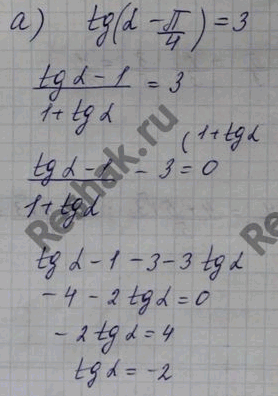 а) tg(α - π/4) = 3
(tgα - 1)/(1 + tgα) = 3
(1 + tgα
(tgα - 1)/(1 + tgα) - 3 = 0
tgα - 1 - 3 - 3 tgα
- 4 - 2 tgα = 0
- 2 tgα = 4
tgα = -2
Reshak.ru